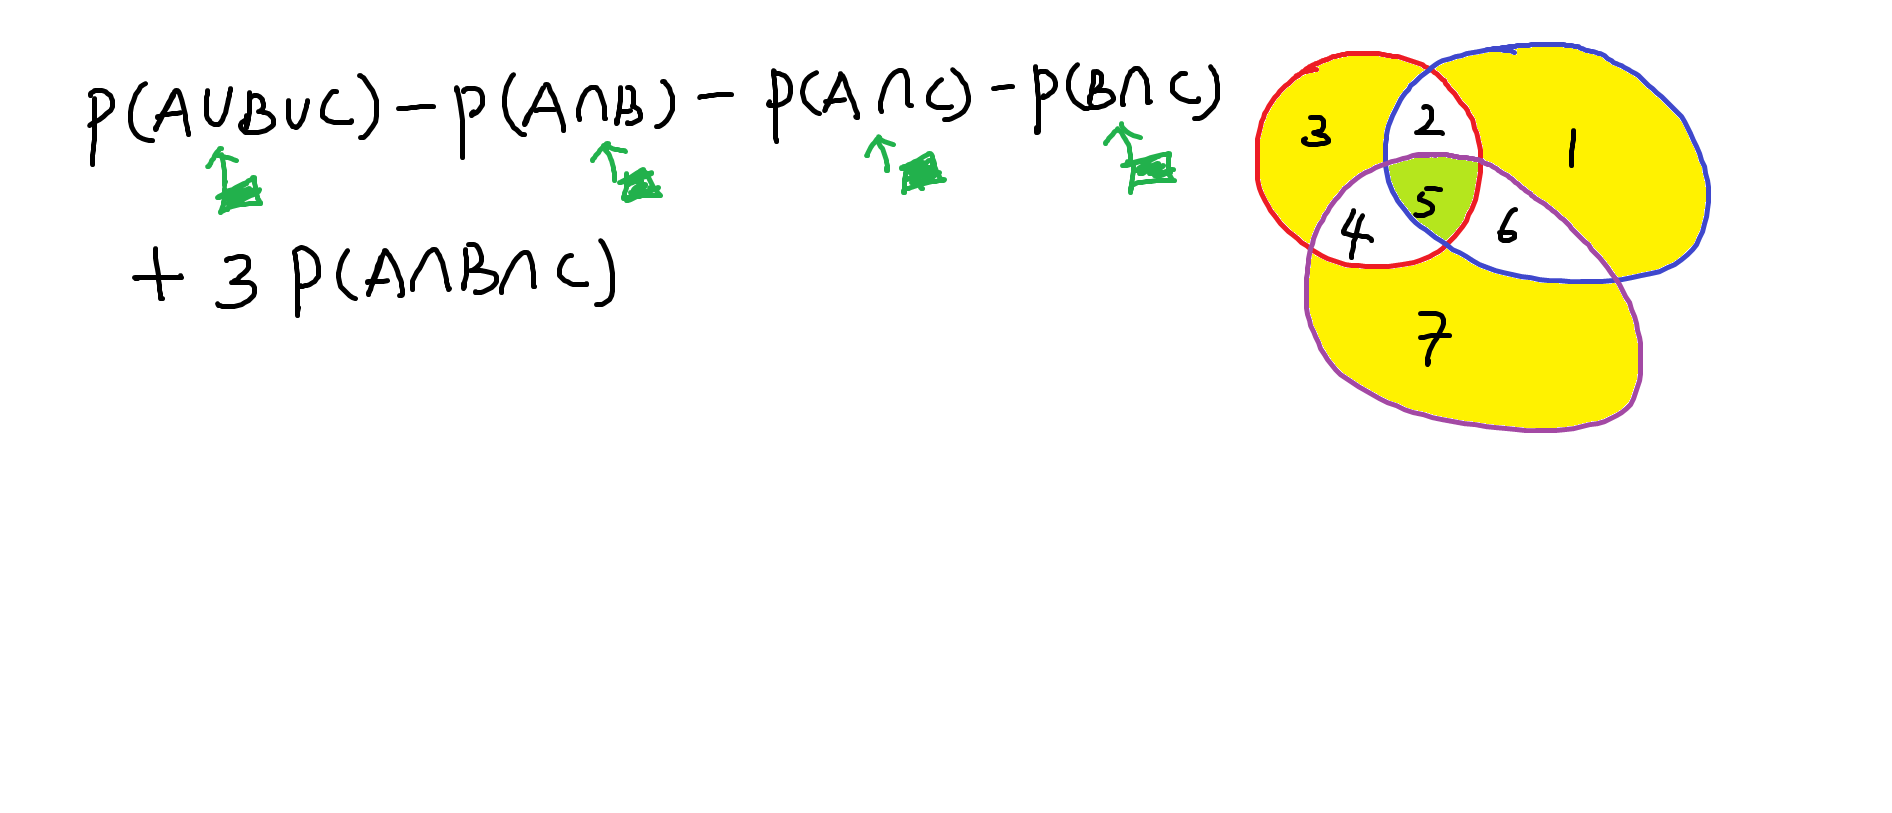 P(A∪B∪C) - P(A∩B) - P(A∩C) - P(B∩C)
+ 3 P(A∩B∩C)
3
2
1
4
5
6
7